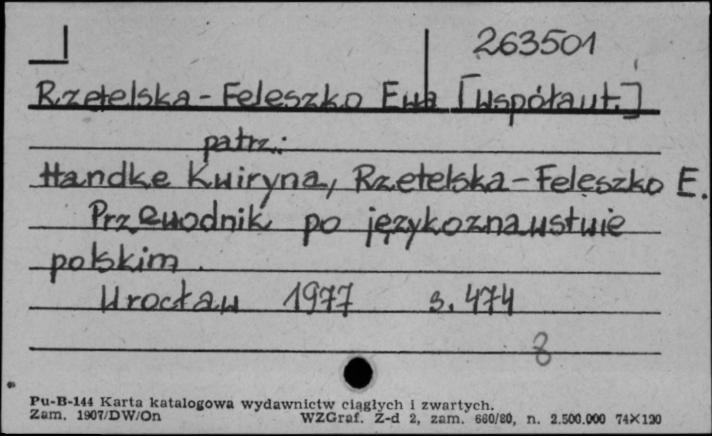 263501
Rzetelska-Feleszko Ewa [współaut.]
patrz:
Handke Kwiryna, Rzetelska-Feleszko E.
Przewodnik po językoznawstwie
polskim.
Wrocław 1977 s. 474
8
Pu-B-144 Karta katalogowa wydawnictw ciągłych i zwartych.
Zam. 1907/DW/On WZGraf. Z-d 2, zam. 660/80, n. 2.500.000 74×120